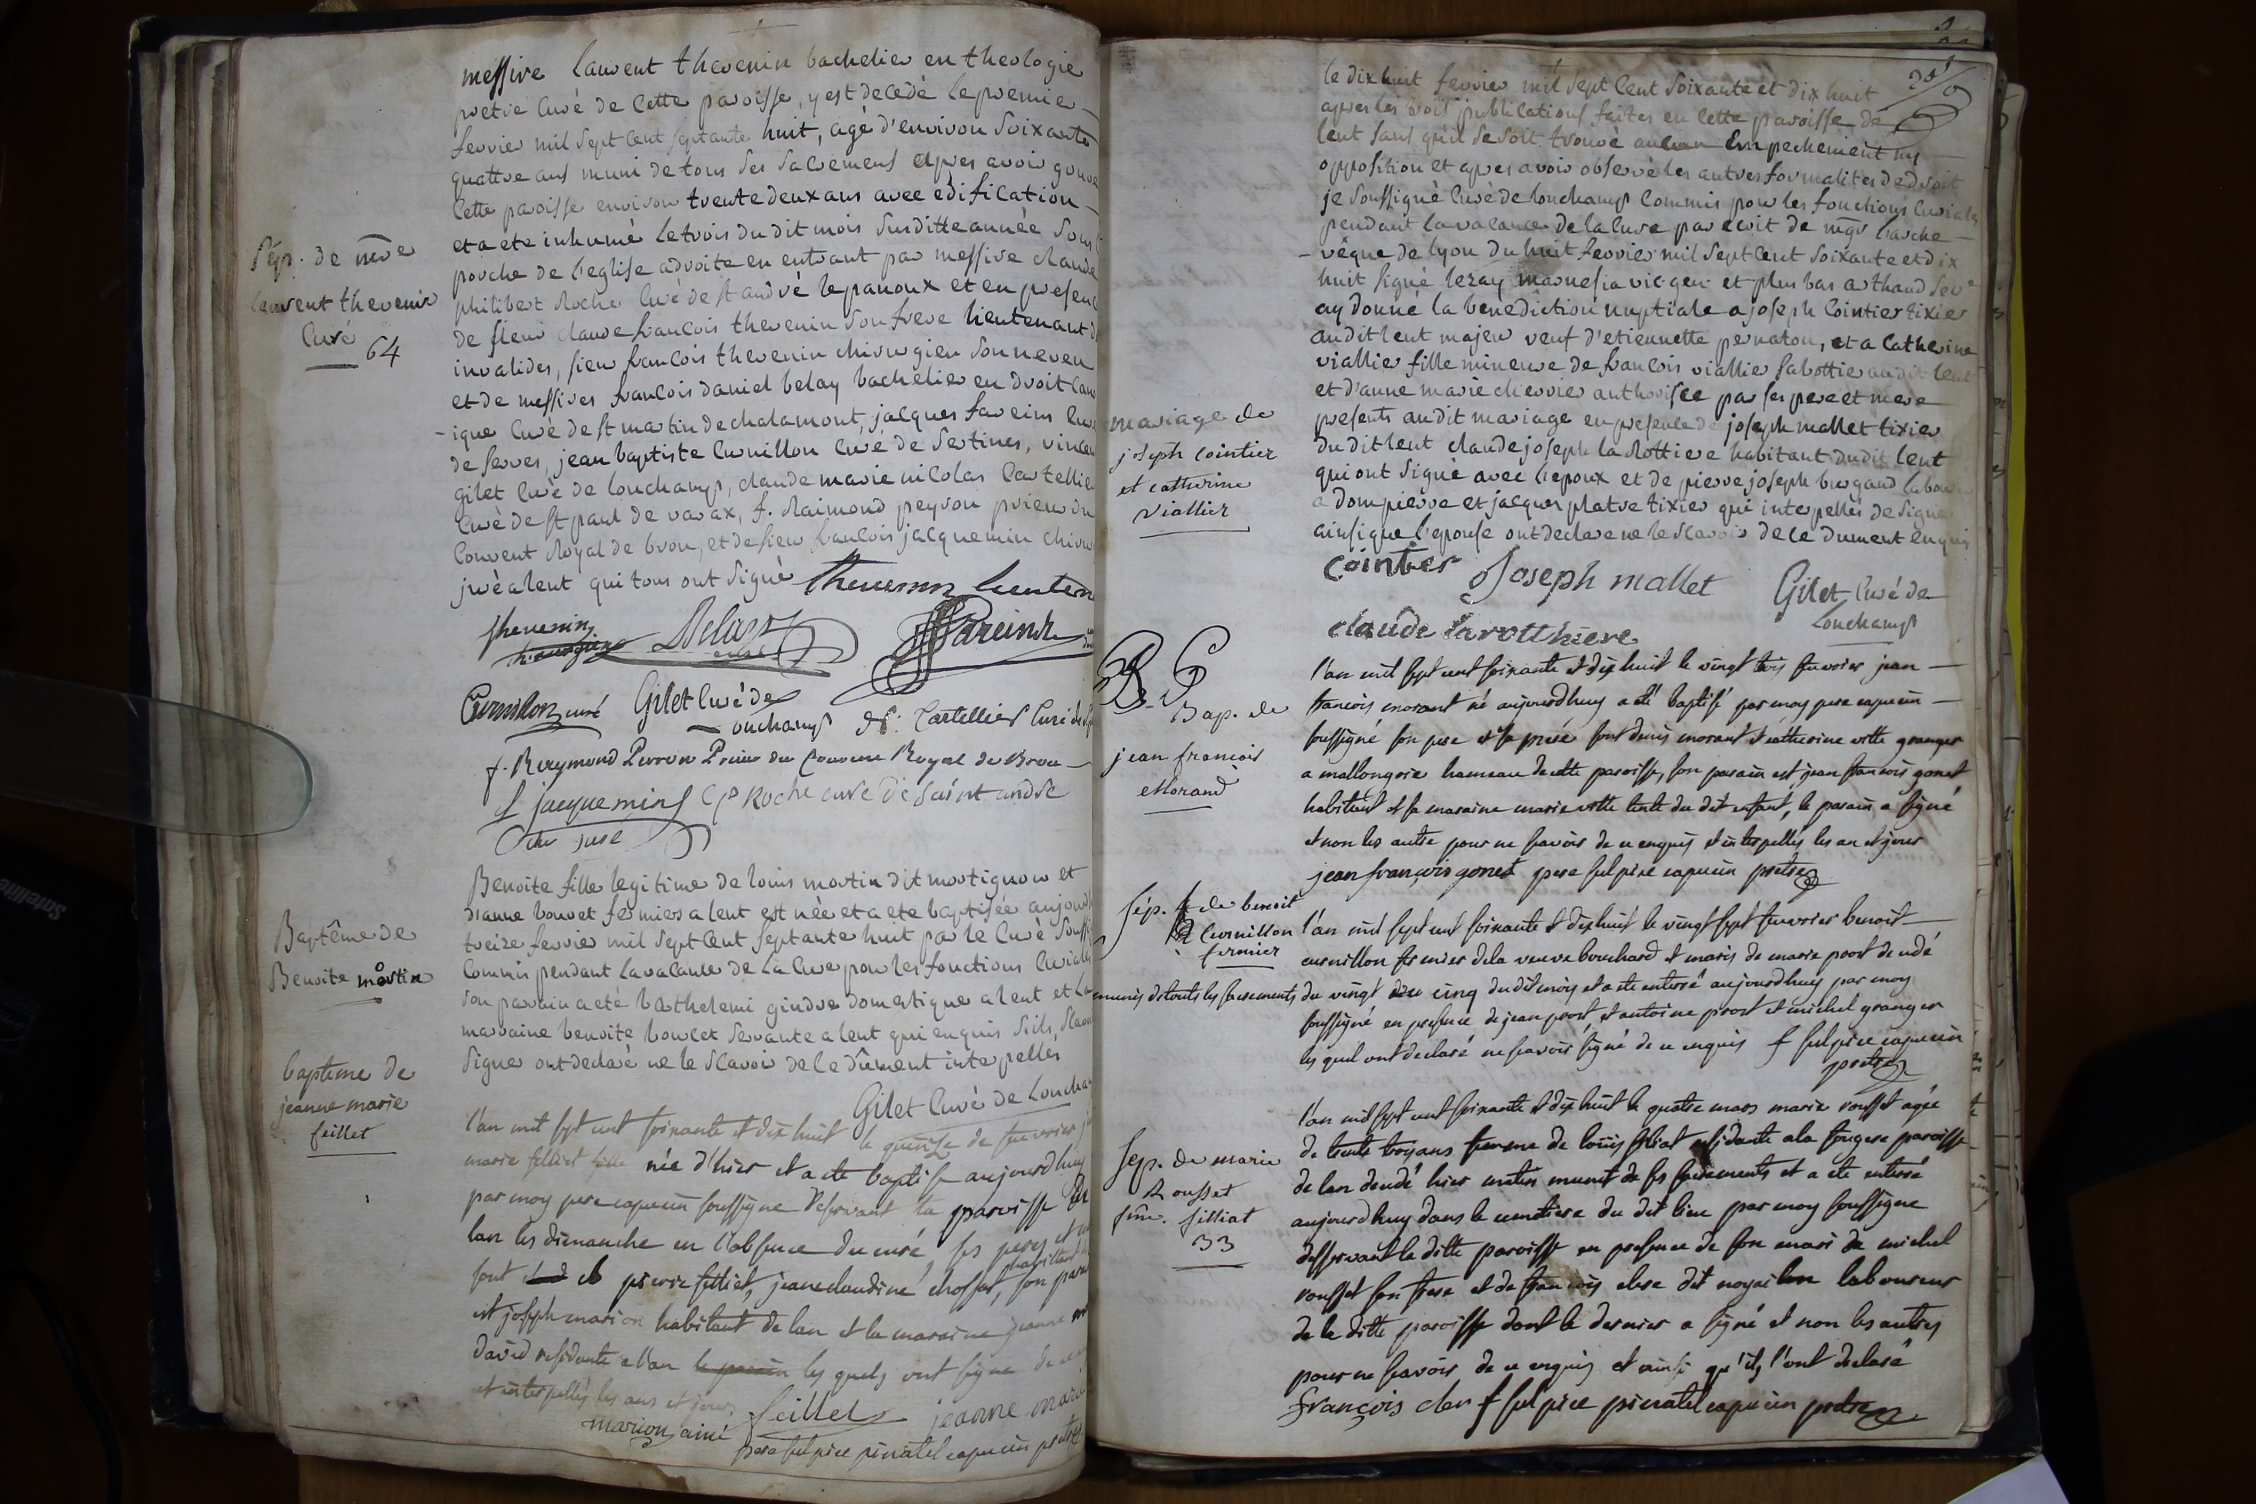 messire laurent thevenin bachelier en theologie
pretre Curé de Cette paroisse, y est decedé le premier
fevrier mil sept cent septante huit, agé d'environ Soixante
quattre ans muni de tous Ses Sacremens et apres avoir gouve
Cette paroisse environ trente deux ans avec edification
et a ete inhumé le trois du dit mois Susditte année Sous
porche de l'eglise a droite en entrant par messire claude
philibert Roche Curé de st andré le panoux et en presenc
de sieur claude francois thevenin Son frere lieutenant d
invalides, sieur francois thevenin chirurgien Son neveu
et de messires francois daniel belay bachelier en droit Can
-ique Curé de st martin de chalamont, jacques faveins Cur
de serves, jean baptiste Curnillon Curé de Sertines, vincen
gilet Curé de Lonchamp, claude marie nicolas Cartellier
Curé de st paul de varax, f. Raimond peyron prieur du
Couvent Royal de brou, et de sieur francois jacquemin chiru
juré a lent qui tous ont Signé
Sép. de mre
laurent thevenin
Curé
64
Thevenin lieuten
thevenin
chirurgien
Belay
curé
Faveins
Curnillon curé
Gilet Curé de
Lonchamp
Cartellier Curé de
f. Raymond Perron Prieur du Couvent Royal de Brou
f jacquemin
chir juré
C P Roche curé de saint andré
Baptême de
Benoite martin
Benoite fille legitime de louis martin dit martignon et
d'anne bouvet fermiers a lent est née et a ete baptisée aujourd
treize fevrier mil Sept Cent Septante huit par le Curé Souss
Commis pendant la vacance de La Cure pour les fonctions Curiales
Son parrain a eté barthelemi gindre domestique a lent et la
marraine benoite bouvet servante a lent qui enquis S'ils Scavoi
Signer ont declaré ne le Scavoir de Ce dûment interpellés
Gilet Curé de Loncha
bapteme de
jeanne marie
feillet
l'an mil sept cent soixante et dix huit le quinze de fevrier
marie felliet fille née d'hier et a ete baptise aujourdhuy
par moy pere capucin soussigne deservant la paroisse de
lan les dimanche en l'absence du curé, ses peres et
sont pierre felliet, jeane claudine chosset, habittant son para
est joseph marion habitant de lan et la maraine jeanne
david residante a lan les quels ont signe de ce
et interpellés les ans et jour
marion ainé feillet jeanne marie
pere sulpice pinatel capucin pretre
le dix huit fevrier mil Sept Cent Soixante et dix huit
apres les trois publications faites en cette paroisse de
lent sans qu'il se soit trouvé aucun Empechement ny
opposition et apres avoir observé les autres formalites de droit
je Soussigné Curé de lonchamp Commis pour les fonctions Curiales
pendant la vacance de la Cure par ecrit de mgr l'arche
-vêque de lyon du huit fevrier mil Sept Cent Soixante et dix
huit Signé lezay marnesia vic gen. et plus bas arthaud Secre
ay donné la benediction nuptiale a joseph Cointier tixier
au dit lent majeur veuf d'etiennette pernaton, et a Catherine
viallier fille mineure de francois viallier Sabottier au dit lent
et d'anne marie chervier authorisée par ses pere et mere
presents au dit mariage en presence de joseph mallet tixier
du dit lent claude joseph la Rottiere habitant du dit lent
qui ont Signé avec l'epoux et de pierre joseph burgaud labour
a dompierre et jacques platre tixier qui interpellés de Signer
ainsi que l'epouse ont declare ne le Scavoir de Ce dument enquis
mariage de
joseph cointier
et catherine
Viallier
cointier Joseph mallet Gilet Curé de
Lonchamp
claude larotthiere
Bap. de
jean francois
Morand
l'an mil sept cent soixante et dix huit le vingt trois fevrier jean
francois morant né aujourdhuy a eté baptisé par moy pere capucin
soussigné son pere et sa mere sont denis morant et catherine vitte granger
a mallongrie hameau de cette paroisse, son parain est jean francois gonet
habitant et sa maraine marie vitte tente du dit enfant, le parain a signé
et non les autre pour ne savoir de ce enquis et interpellés les an et jour
jean françois gonet pere sulpice capucin pretre
Sép. de benoit
Curnillon
fermier
l'an mil sept cent soixante et dix huit le vingt sept fevrier benoit
curnillon fermier de la veuve bouchard et maris de marie proost decedé
munis de touts les sacrements du vingt cinq du dit mois et a ete enterré aujourdhuy par moy
soussigné en presence de jean proost et antoine proost et michel granger
les quel ont declaré ne savoir signé de ce enquis f sulpice capucin
pretre
Sep. de marie
Rousset
fme. filliat
33
l'an mil sept cent soixante et dix huit le quatre mars marie rousset agée
de trente troy ans femme de louis filiat residante a la fougere paroisse
de lan decedé hier matin munit de ses sacrements et a ete enterré
aujourdhuy dans le cimetiere du dit lieu par moy soussigne
desservant le ditte paroisse en presence de son mari de michel
rousset son frere et de francois clere dit noyer laboureur
de la ditte paroisse dont le dernier a signé et non les autres
pour ne savoir de ce enquis et ainsi qu'ils l'ont declaré
François cler f sulpice pinatel capucin pretre